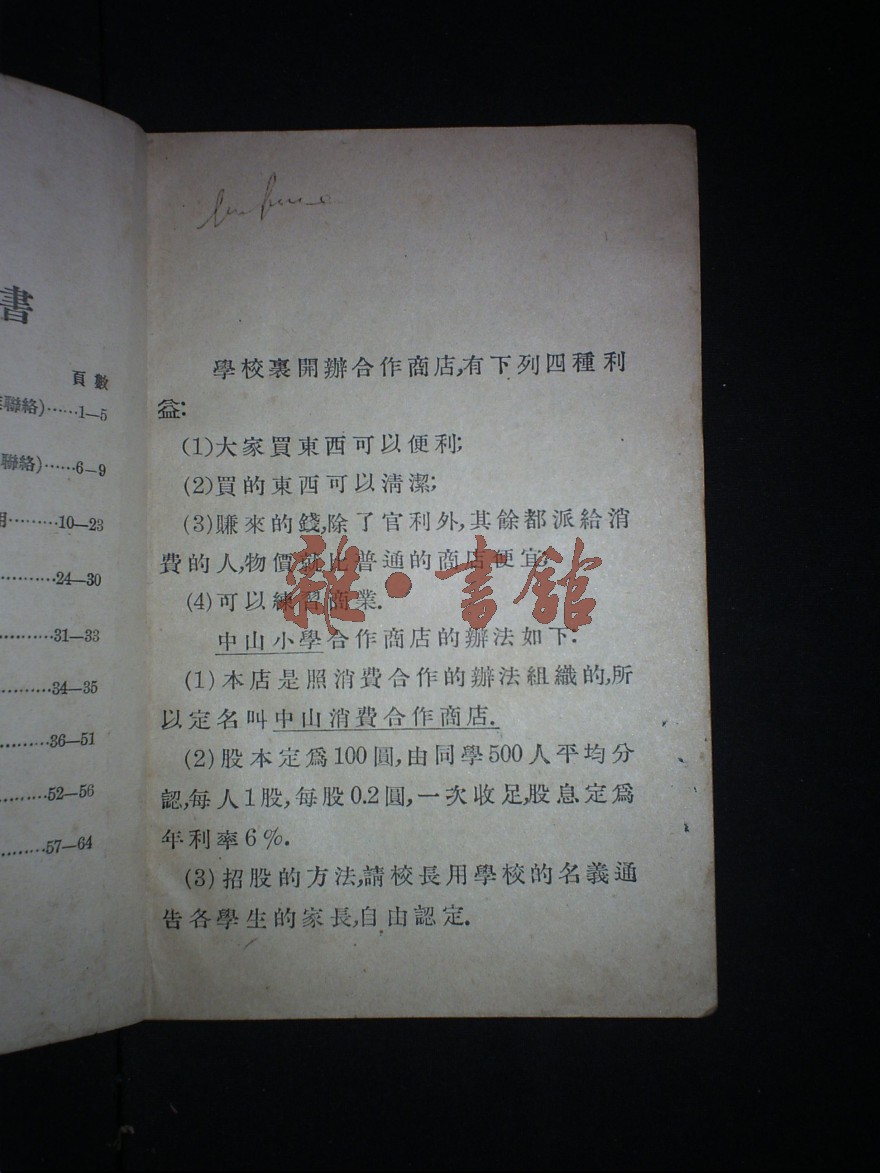 書
頁數
聯絡)……1—5
聯絡)……6—9
用………10—23
………24—30
………31—33
………34—35
………36—51
………52—56
………57—64
學校裏開辦合作商店,有下列四種利
益:
(1)大家買東西可以便利;
(2)買的東西可以清潔;
(3)賺來的錢,除了官利外,其餘都派給消
費的人,物價就比普通的商店便宜;
(4)可以練習商業.
中山小學合作商店的辦法如下:
(1)本店是照消費合作的辦法組織的,所
以定名叫中山消費合作商店.
(2)股本定爲100圓,由同學500人平均分
認,每人1股,每股0.2圓,一次收足,股息定爲
年利率6%.
(3)招股的方法,請校長用學校的名義通
告各學生的家長,自由認定.
雜·書館